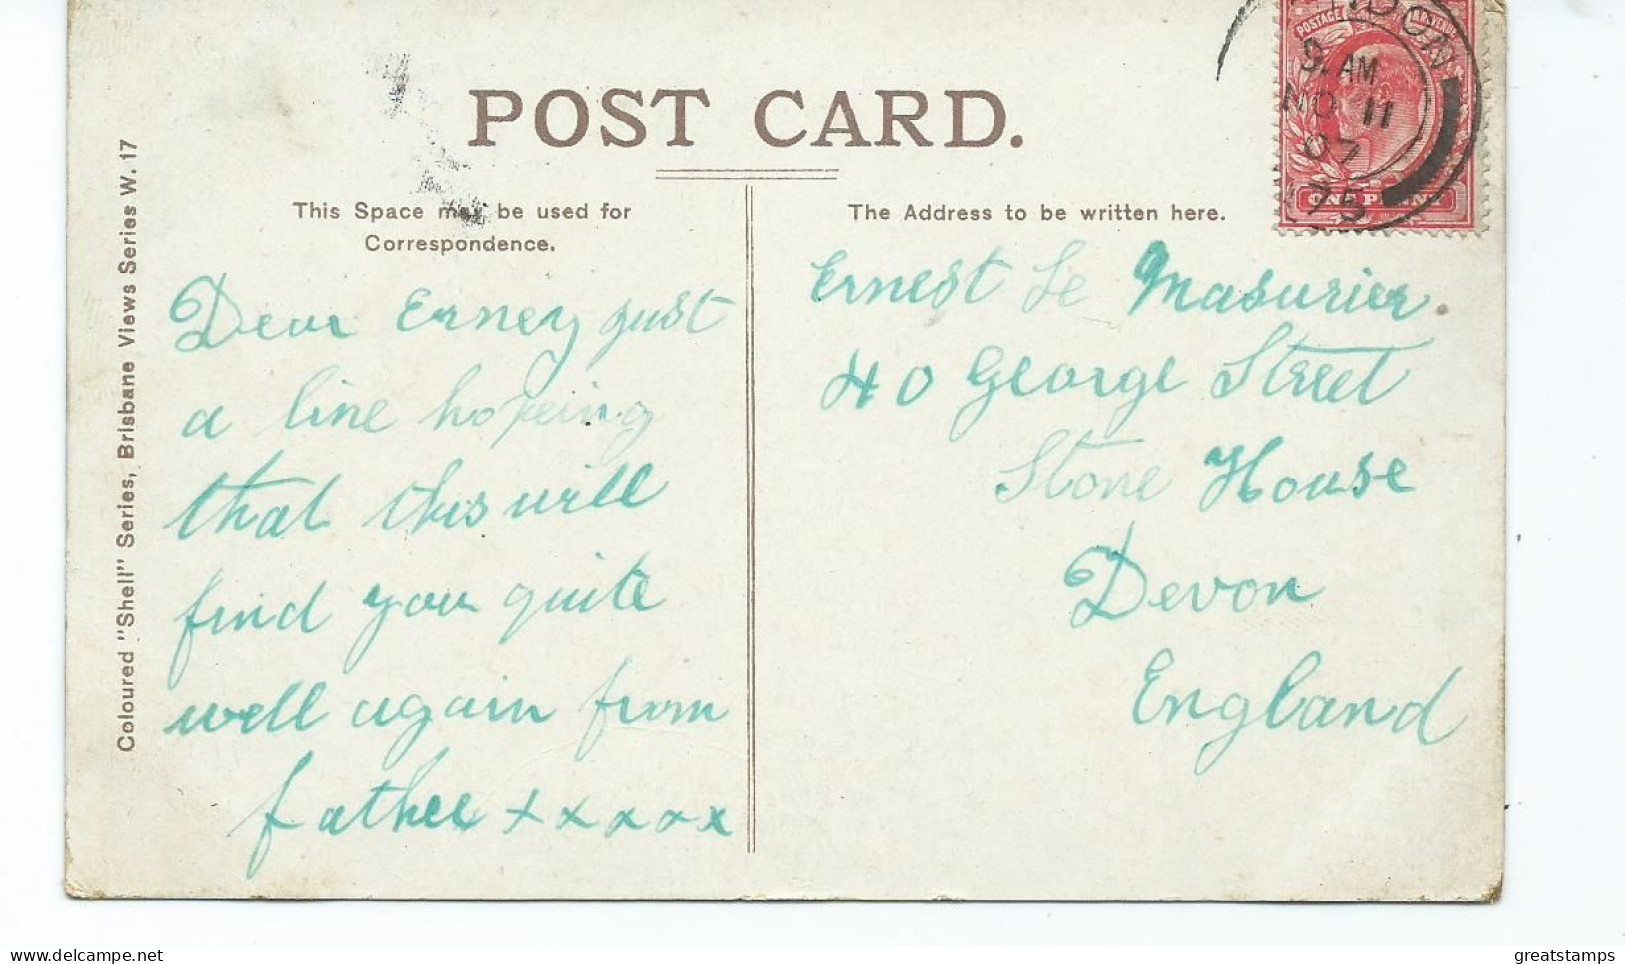 POST CARD.
This Space may be used for
Correspondence.
The Address to be written here.
Coloured "Shell" Series, Brisbane Views Series W. 17
POSTAGE
9. AM
NO 11
07
75
ONE PENNY
Dear Erney just
a line hopeing
that this will
find you quite
well again from
father x x x x x
Ernest Le Masurier.
40 George Street
Stone House
Devon
England
greatstamps